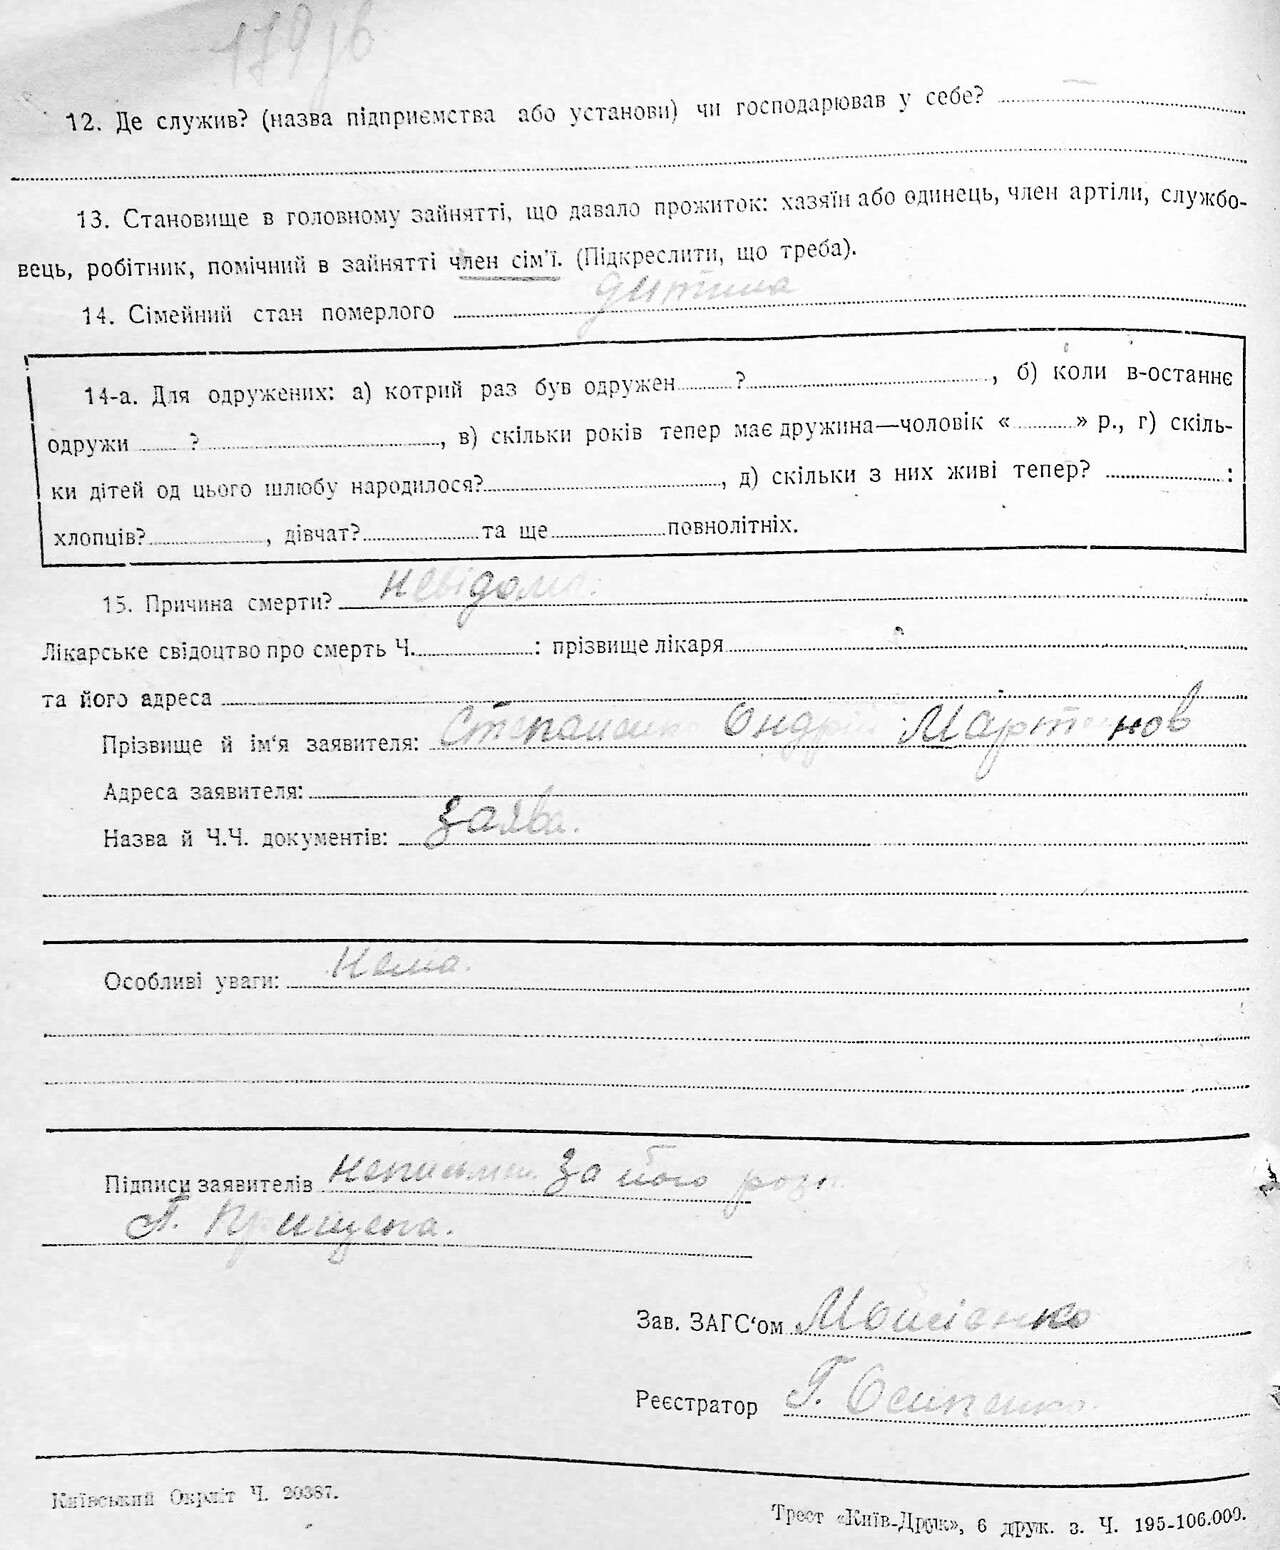 179 зв
12. Де служив? (назва підприємства або установи) чи господарював у себе? —
13. Становище в головному зайнятті, що давало прожиток: хазяїн або одинець, член артіли, службо-
вець, робітник, помічний в зайнятті член сім'ї. (Підкреслити, що треба).
14. Сімейний стан померлого дитина
14-а. Для одружених: а) котрий раз був одружен ? , б) коли в-останнє
одружи ? , в) скільки років тепер має дружина—чоловік « » р., г) скіль-
ки дітей од цього шлюбу народилося? , д) скільки з них живі тепер? :
хлопців? , дівчат? та ще повнолітніх.
15. Причина смерти? невідома.
Лікарське свідоцтво про смерть Ч. : прізвище лікаря
та його адреса
Прізвище й ім'я заявителя: Степаненко Ондрій Мартинов
Адреса заявителя:
Назва й Ч.Ч. документів: Заява.
Особливі уваги: Нема.
Підписи заявителів Неписьмен. За його розп.
П. Прищепа.
Зав. ЗАГС'ом Мойсієнко
Реєстратор Г. Осипенко.
Київський Окрліт Ч. 20387.
Трест «Київ-Друк», 6 друк. з. Ч. 195-106.000.